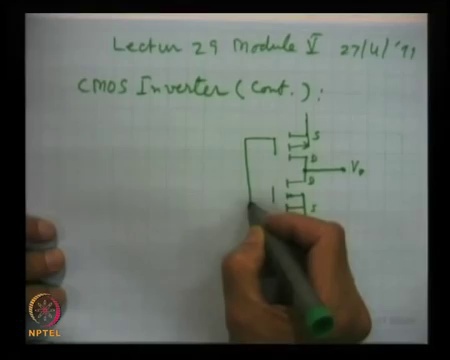 Lectur 29 Module V 27/4/'99
CMOS Inverter (Cont.) :
S
D
Vo
D
S
NPTEL